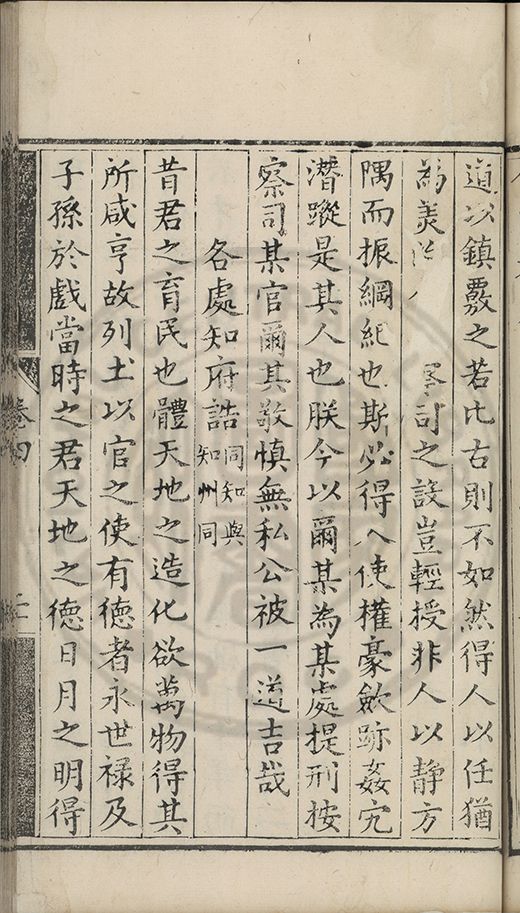 道以鎮覈之若比古則不如然得人以任猶
為美
察司之設豈輕授非人以靜方
隅而振綱紀也斯必得人使權豪斂跡姦宄
潛蹤是其人也朕今以爾某為某處提刑按
察司某官爾其敬慎無私公被一道吉哉
各處知府誥
同知與
知州同
昔君之育民也體天地之造化欲萬物得其
所咸亨故列土以官之使有德者永世祿及
子孫於戲當時之君天地之德日月之明得
卷四